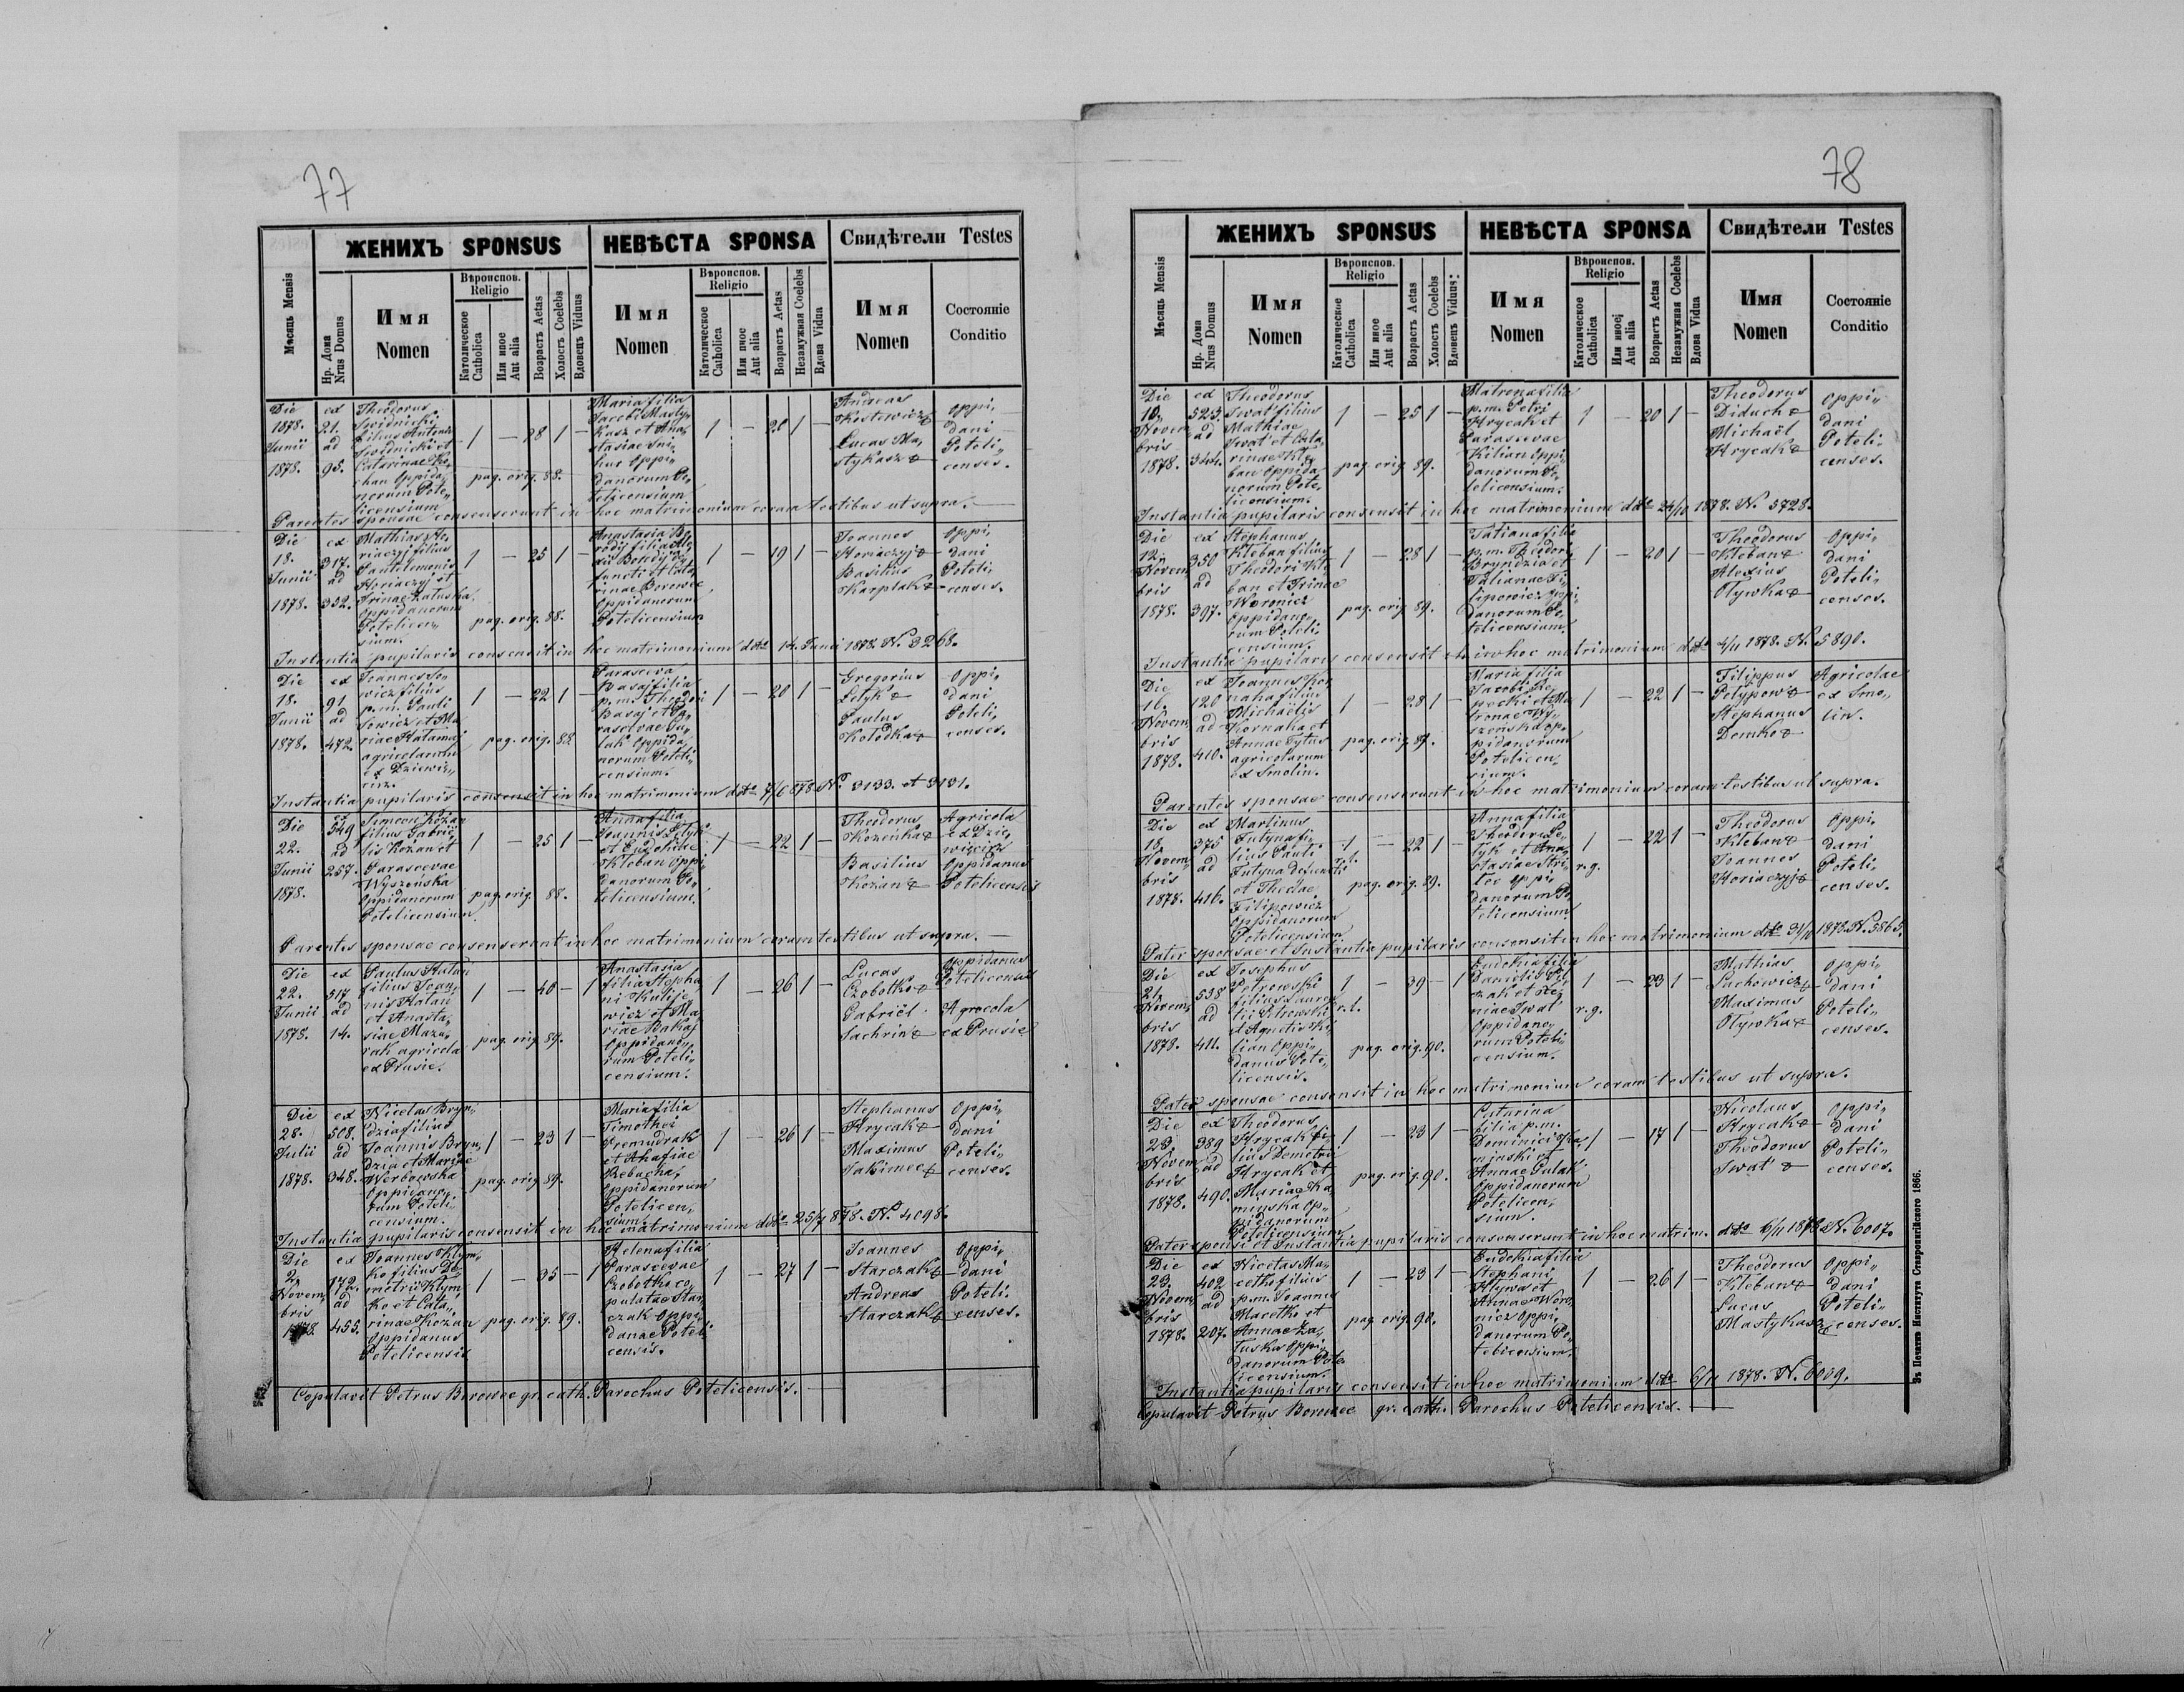 77
ЖЕНИХЪ SPONSUS
НЕВѢСТА SPONSA
Свидѣтели Testes
Мѣсяць Mensis
Нр. Дома
Nrus Domus
Имя
Nomen
Вѣроиспов.
Religio
Католическое
Catholica
Или иное
Aut alia
Возрастъ Aetas
Холостъ Coelebs
Вдовецъ Viduus
Имя
Nomen
Вѣроиспов.
Religio
Католическое
Catholica
Или иное
Aut alia
Возрастъ Aetas
Незамужная Coelebs
Вдова Vidua
Имя
Nomen
Состояніе
Conditio
Die
1878.
Junii
1878.
ex
21.
ad
95.
Theodorus
Swidnicki
filius Antonii
Swidnicki et
Catarinae
chan Oppida„
norum Pote„
licensium
1 — 28 1 —
pag. orig. 88.
Maria filia
Jacobi Masty„
kasz et Ana„
stasiae
Oppi„
danorum Po„
telicensium
1 — 20 1 —
Andreas
Kostewicz
Lucas Ma„
stykasz
Oppi„
dani
Poteli„
censes.
Parentes sponsae consenserunt in hoc matrimonium coram testibus ut supra.
Die
18.
Junii
1878.
ex
317.
ad
332.
Mathias Ho„
riaczyj filius
Pantelemonis
Horiaczyj et
Irinae Zatuska
Oppidanorum
Potelicen„
sium.
1 — 25 1 —
pag. orig. 88.
Anastasia B„
rodij filia
Brodij de„
functi et Cata„
rinae Borowec
Oppidanorum
Potelicensium
1 — 19 1 —
Joannes
Horiaczyj
Basilius
Karplak
Oppi„
dani
Poteli„
censes.
Instantia pupilaris consensit in hoc matrimonium ddto 14. Junii 1878. N. 3268.
Die
18.
Junii
1878.
ex
91
ad
472.
Joannes So„
wicz filius
p.m. Pauli
Sowicz et Ma„
riae Hatamaj
agricolarum
ex Dziewię„
cirz.
1 — 22 1 —
pag. orig. 88
Parasceva
Basaj filia
p.m. Theodori
Basaj et Pa„
rascevae Du„
lak Oppida„
norum Poteli„
censium.
1 — 20 1 —
Gregorius
Letyk
Paulus
Kolodka
Oppi„
dani
Poteli„
censes.
Instantia pupilaris consensit in hoc matrimonium ddto 7/6 878 N. 3133. et 3131.
Die
22.
Junii
1878.
549
ad
257.
Simeon Kożan
filius Gabrie„
lis Kożan et
Parascevae
Wyszenska
Oppidanorum
Potelicensium
1 — 25 1 —
pag. orig. 88.
Anna filia
Joannis Letyk
et Eudokiae
Kleban Oppi„
danorum Po„
telicensium.
1 — 22 1 —
Theodorus
Kożenka
Basilius
Kożan
Agricola
ex Dzie„
więcirz
Oppidanus
Potelicensis
Parentes sponsae consenserunt in hoc matrimonium coram testibus ut supra.
Die
22.
Junii
1878.
ex
517
ad
14.
Paulus Hatan
filius Joan„
nis Hatan
et Anasta„
siae Mazu„
rak agricola
ex Prusie.
1 — 40 — 1
pag. orig. 89.
Anastasia
filia Stepha„
ni Kulije„
wicz et Ma„
riae Bakaj
Oppidano„
rum Poteli„
censium.
1 — 26 1 —
Lucas
Czobotko
Gabriël
Sachrin
Oppidanus
Potelicensis
Agrocola
ex Prusie
Die
28.
Julii
1878.
ex
508.
ad
348.
Nicetas Bryn„
dzia filius
Joannis Bryn„
dzia et Mariae
Werbowska
Oppidano„
rum Poteli„
censium.
1 — 23 1 —
pag. orig. 89.
Maria filia
Timothei
Premudrak
et Ahafiae
Rebacha,
Oppidanorum
Potelicen„
sium.
1 — 26 1 —
Stephanus
Hrycak
Maximus
Jakimec
Oppi„
dani
Poteli„
censes.
Instantia pupilaris consensit in hoc matrimonium ddto 25/7 878. N. 4098.
Die
2.
Novem„
bris
1878.
ex
172.
ad
455.
Joannes Klym„
ko filius De„
metrii Klym„
ko et Cata„
rinae Kożan
Oppidanus
Potelicensis
1 — 35 — 1
pag. orig. 89.
Helena filia
Parascevae
Czobotka co„
pulatae Star„
czak Oppi„
danae Poteli„
censis.
1 — 27 1 —
Joannes
Starczak
Andreas
Starczak
Oppi„
dani
Poteli„
censes.
Copulavit Petrus Borowec gr. cath. Parochus Potelicensis.
78
ЖЕНИХЪ SPONSUS
НЕВѢСТА SPONSA
Свидѣтели Testes
Мѣсяць Mensis
Нр. Дома
Nrus Domus
Имя
Nomen
Вѣроиспов.
Religio
Католическое
Catholica
Или иное
Aut alia
Возрастъ Aetas
Холостъ Coelebs
Вдовецъ Viduus:
Имя
Nomen
Вѣроиспов.
Religio
Католическое
Catholica
Или иноеј
Aut alia
Возрастъ Aetas
Незамужная Coelebs
Вдова Vidua
Имя
Nomen
Состояніе
Conditio
Die
10.
Novem„
bris
1878.
ex
523
ad
344.
Theodorus
Iwat filius
Mathiae
Iwat et Cata„
rinae Kle„
ban Oppida„
norum Pote„
licensium.
1 — 25 1 —
pag. orig. 89.
Matrona filia
p.m. Petri
Hrycak et
Parascevae
Kilian Oppi„
danorum Po„
telicensium.
1 — 20 1 —
Theodorus
Diduch
Michaël
Hrycak
Oppi„
dani
Poteli„
censes.
Instantia pupilaris consensit in hoc matrimonium ddto 24/10 1878. N. 5728.
Die
12.
Novem„
bris
1878.
ex
350
ad
397.
Stephanus
Kleban filius
Theodori Kle„
ban et Irinae
Woronicz
Oppidano„
rum Poteli„
censium.
1 — 28 1 —
pag. orig. 89.
Tatiana filia
p.m. Theodori
Bryndzia et
Tatianae Fi„
lipowicz Oppi„
danorum Po„
telicensium.
1 — 20 1 —
Theodorus
Kleban
Alexius
Otywka
Oppi„
dani
Poteli„
censes.
Instantia pupilaris consensit in hoc matrimonium ddto 4/11 1878. N. 5890.
Die
16.
Novem„
bris
1878.
ex
120
ad
410.
Joannes Kor„
naha filius
Michaëlis
Kornaha et
Annae Tytus
agricolarum
ex Smolin.
1 — 28 1 —
pag. orig. 89.
Maria filia
Jacobi Re„
pecki et Ma„
tronae Wy„
szenska Op„
pidanorum
Potelicen„
sium.
1 — 22 1 —
Filippus
Petypow
Stephanus
Demko
Agricolae
ex Smo„
lin.
Parentes sponsae consenserunt in hoc matrimonium coram testibus ut supra.
Die
18.
Novem„
bris
1878.
ex
375
ad
416.
Martinus
Futyna fi„
lius Pauli
Futyna defuncti
et Theclae
Filipowicz
Oppidanorum
Potelicensium
1 — 22 1 —
r.l.
pag. orig. 89.
Anna filia
Theodori Le„
tyk et Ana„
stasiae
Oppi„
danorum Po„
telicensium
1 — 22 1 —
r.g.
Theodorus
Kleban
Joannes
Horiaczyj
Oppi„
dani
Poteli„
censes.
Pater sponsae et Instantia pupilaris consensit in hoc matrimonium ddto 31/10 1878. N. 5865.
Die
21.
Novem„
bris
1878.
ex
538
ad
411.
Josephus
Petrowski
filius Lauren„
tii Petrowski
et Agnetis Ki„
lian Oppi„
danus Pote„
licensis.
1 — 39 — 1
r.l.
pag. orig. 90.
Eudokia filia
Danielis
et Xe„
niae Iwat
Oppidano„
rum Poteli„
censium.
1 — 23 1 —
r.g.
Mathias
Sachowicz
Maximus
Otywka
Oppi„
dani
Poteli„
censes.
Pater sponsae consensit in hoc matrimonium coram testibus ut supra.
Die
23.
Novem„
bris
1878.
ex
389
ad
490.
Theodorus
Hrycak fi„
lius Demetrii
Hrycak et
Mariae Ka„
minska Op„
pidanorum
Potelicensium
1 — 23 1 —
pag. orig. 90.
Catarina
filia p.m.
Dominici Ka„
minski et
Annae Dulak
Oppidanorum
Potelicen„
sium.
1 — 17 1 —
Nicolaus
Hrycak
Theodorus
Iwat
Oppi„
dani
Poteli„
censes.
Pater sponsi et Instantia pupilaris consenserunt in hoc matrim. ddto 6/11 1878 N. 6007.
Die
23.
Novem„
bris
1878.
ex
402.
ad
207.
Nicetas Ma„
cetko filius
p.m. Joannis
Macetko et
Annae Za„
tuska Oppi„
danorum Pote„
licensium.
1 — 23 1 —
pag. orig. 90.
Eudokia filia
Stephani
Hlywa et
Annae Woro„
nicz Oppi„
danorum Po„
telicensium.
1 — 26 1 —
Theodorus
Kleban
Lucas
Mastykasz
Oppi„
dani
Poteli„
censes.
Instantia pupilaris consensit in hoc matrimonium ddto 6/11 1878. N. 6009.
Copulavit Petrus Borowec gr. cath. Parochus Potelicensis.
Зъ Печатнѣ Института Ставропигійского 1866.